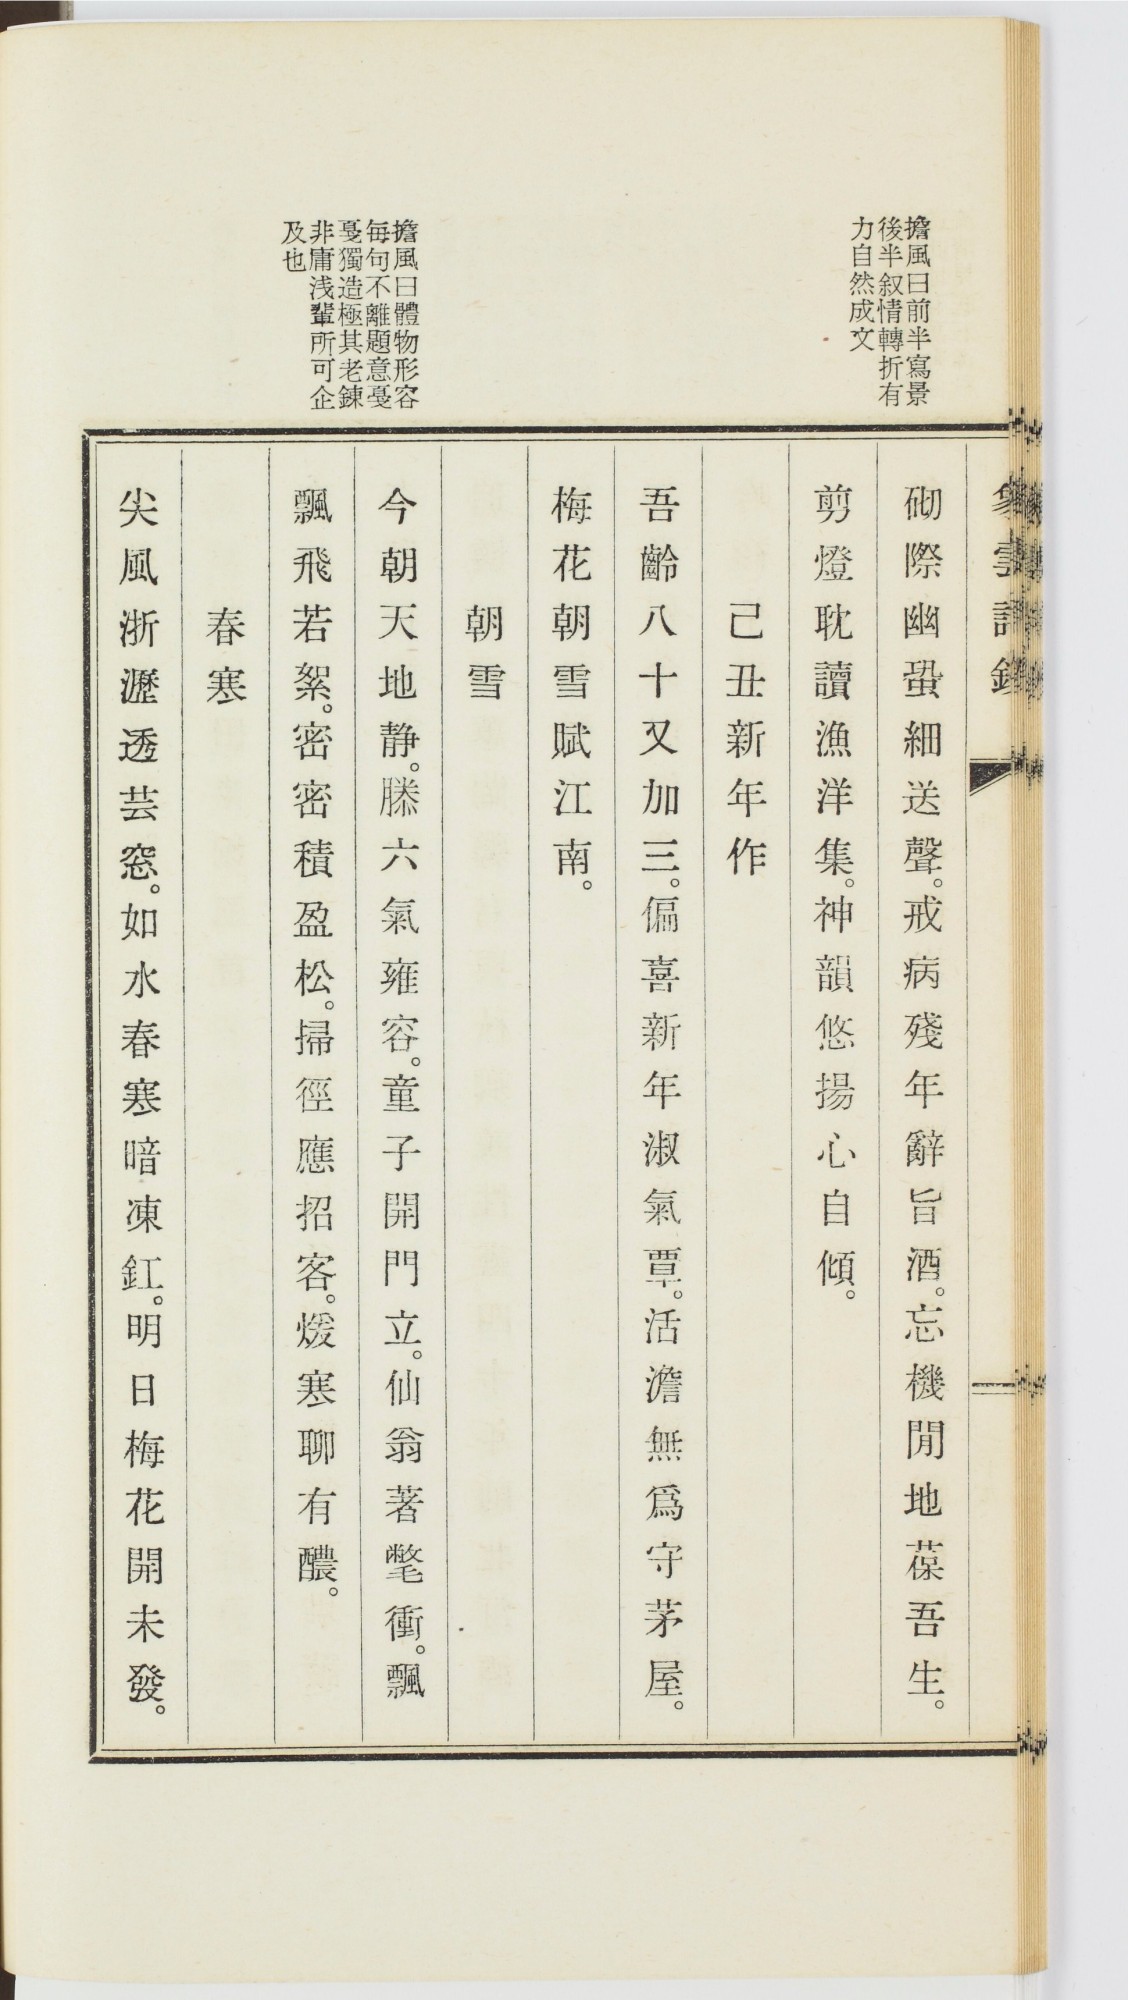 擔風曰前半寫景
後半叙情轉折有
力自然成文
擔風曰體物形容
毎句不離題意戞
戞獨造極其老錬
非庸浅輩所可企
及也
雲詩鈔
砌際幽蛩細送聲。戒病殘年辭旨酒。忘機閒地葆吾生。
剪燈耽讀漁洋集。神韻悠揚心自傾。
己丑新年作
吾齡八十又加三。偏喜新年淑氣覃。活澹無爲守茅屋。
梅花朝雪賦江南。
朝雪
今朝天地静。滕六氣雍容。童子開門立。仙翁著氅衝。飄
飄飛若絮。密密積盈松。掃徑應招客。煖寒聊有醲。
春寒
尖風浙瀝透芸窓。如水春寒暗凍釭。明日梅花開未發。